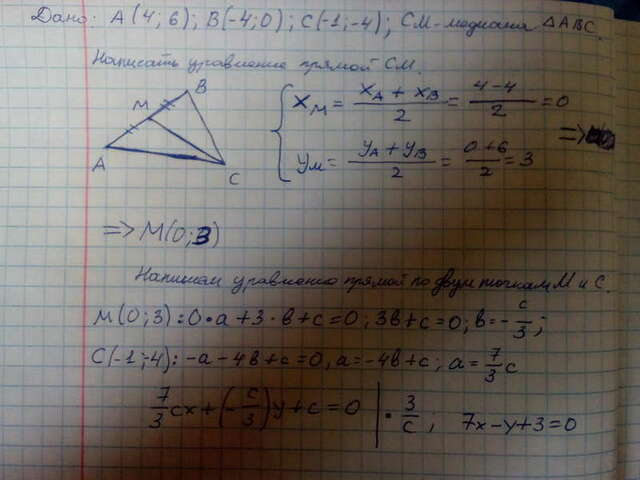 Дано: A(4;6); B(-4;0); C(-1;-4); CM-медиана △ABC.
Написать уравнение прямой CM.
B
M
A
C
x_M = (x_A + x_B)/2 = (4-4)/2 = 0
y_M = (y_A + y_B)/2 = (0+6)/2 = 3
=>
=> M(0;3)
Напишем уравнение прямой по двум точкам M и C.
M(0;3): 0•a+3•b+c=0; 3b+c=0; b=-c/3;
C(-1;-4): -a-4b+c=0, a=-4b+c; a=7/3c
7/3cx+(-c/3)y+c=0 | • 3/c; 7x-y+3=0